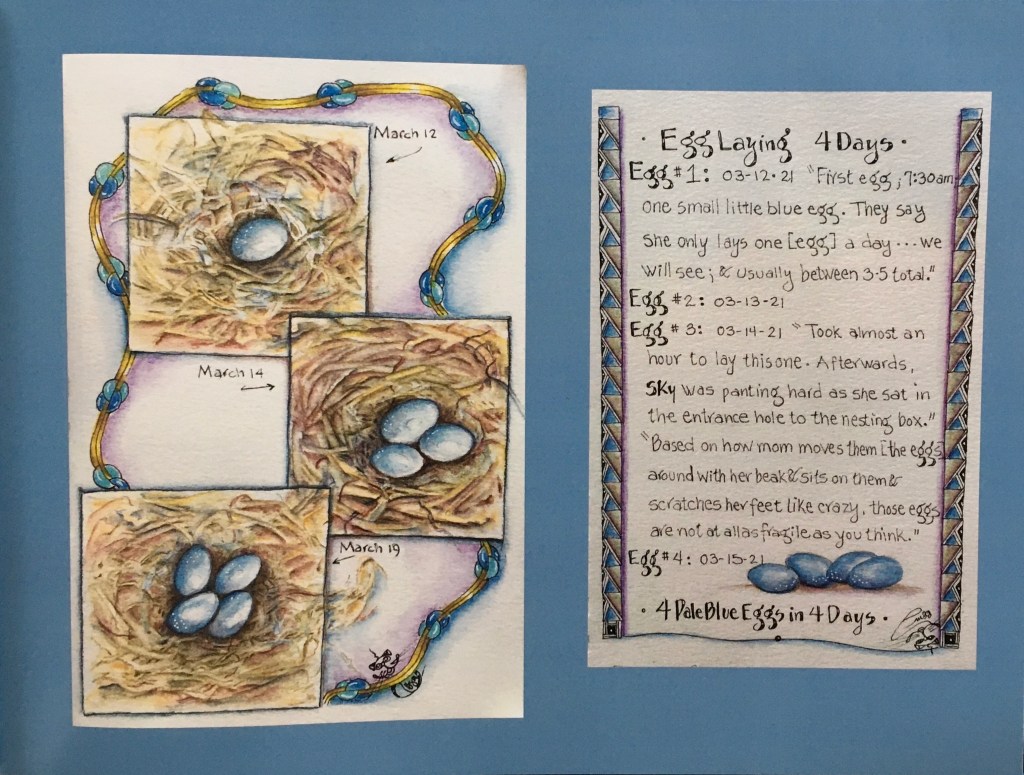 March 12
March 14
March 19
· Egg Laying 4 Days ·
Egg #1: 03-12-21 "First egg; 7:30am
one small little blue egg. They say
she only lays one [egg] a day...we
will see; & usually between 3-5 total."
Egg #2: 03-13-21
Egg #3: 03-14-21 "Took almost an
hour to lay this one. Afterwards,
Sky was panting hard as she sat in
the entrance hole to the nesting box."
"Based on how mom moves them [the eggs]
around with her beak & sits on them &
scratches her feet like crazy, those eggs
are not at all as fragile as you think."
Egg #4: 03-15-21
· 4 Pale Blue Eggs in 4 Days ·